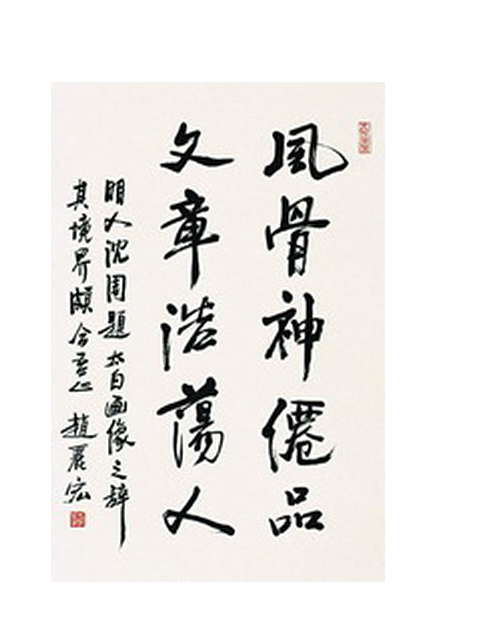 風骨神僊品
文章浩蕩人
明人沈周題太白画像之辞
其境界頗合吾心 趙麗宏